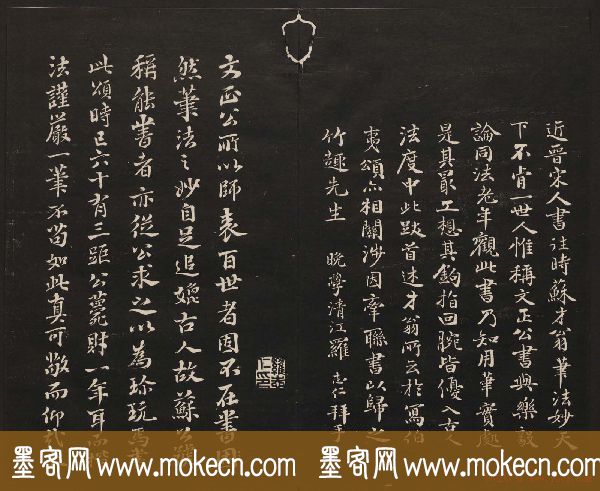 近晉宋人書往時蘇才翁筆法妙天
下不肯一世人惟稱文正公書與樂毅
論同法老年觀此書乃知用筆實處
是其最工想其鉤指回腕皆優入古人
法度中此跋首述才翁所云於寫伯
夷頌亦相關涉因牽聯書以歸之
竹趣先生 晚學清江羅志仁拜手
文正公所以師表百世者固不在書固
然筆法之妙自足追媲古人故蘇公
稱能書者亦從公求之以為珍玩焉書
此頌時已六十有三距公薨財一年耳而楷
法謹嚴一筆不苟如此真可敬而仰
墨客网 www.mokecn.com 墨客网 www.mokecn.com